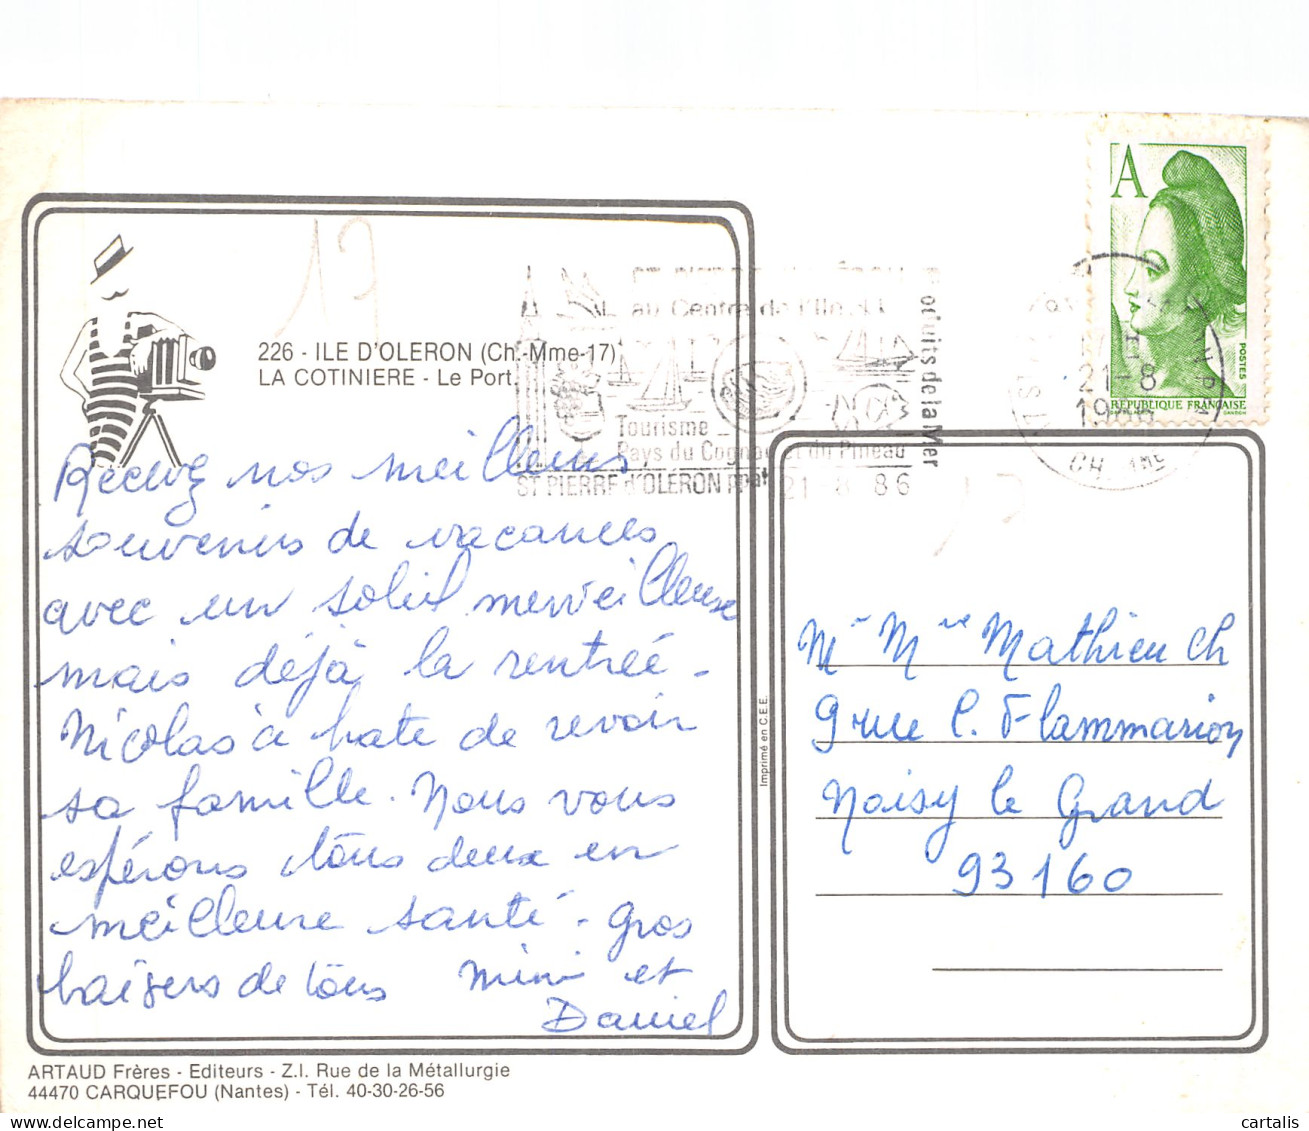 A
POSTES
RÉPUBLIQUE FRANÇAISE
au Centre de l'Ile
Tourisme _
Pays du Cognac et du Pineau
ST PIERRE d'OLERON ppal 21-8 86
de la Mer
21-8
1986
CH. Mme
17
226 - ILE D'OLERON (Ch.-Mme-17)
LA COTINIERE - Le Port.
Recevez nos meilleurs
souvenirs de vacances
avec un soleil merveilleuse
mais déjà la rentrée -
Nicolas à hate de revoir
sa famille. Nous vous
espérons tous deux en
meilleure santé - gros
baisers de tous Mimi et
Daniel
Imprimé en C.E.E.
Mr Mme Mathieu Ch
9 rue C. Flammarion
Noisy le Grand
93160
ARTAUD Frères - Editeurs - Z.I. Rue de la Métallurgie
44470 CARQUEFOU (Nantes) - Tél. 40-30-26-56
www.delcampe.net
cartalis